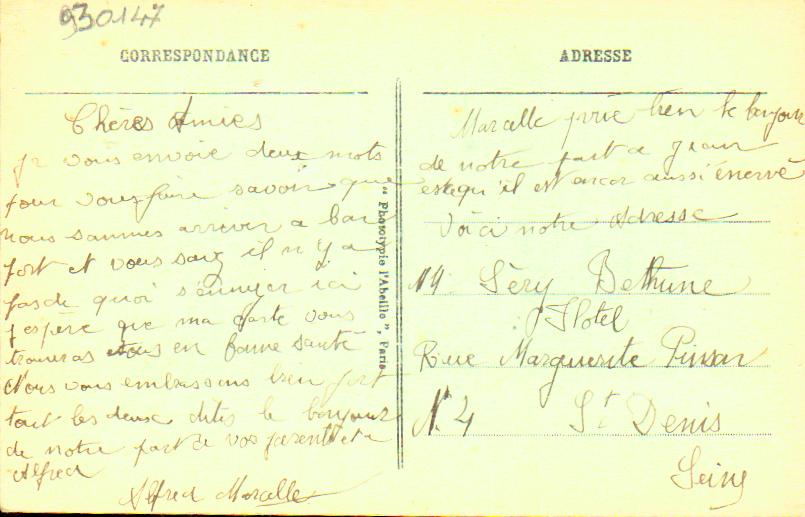 930147
CORRESPONDANCE
Chères Amies
je vous envoie deux mots
pour vous faire savoir que
nous sammes arriver a bon
port et vous savez il n y a
pas de quoi s'ennuyer ici
j'espère que ma carte vous
trouveras tous en bonne santé
Nous vous embrassons bien fort
tout les deux dites le bonjour
de notre part à vos parents et a
Alfred
Alfred Marcelle
"Phototypie l'Abeille", Paris
ADRESSE
Marcelle prie bien le bonjour
de notre part a
esceque'il est encor aussi énervé
Voici notre adresse
Léry Bethune
Hotel
Rue Marguerite Pinson
N. 4 St Denis
Seine